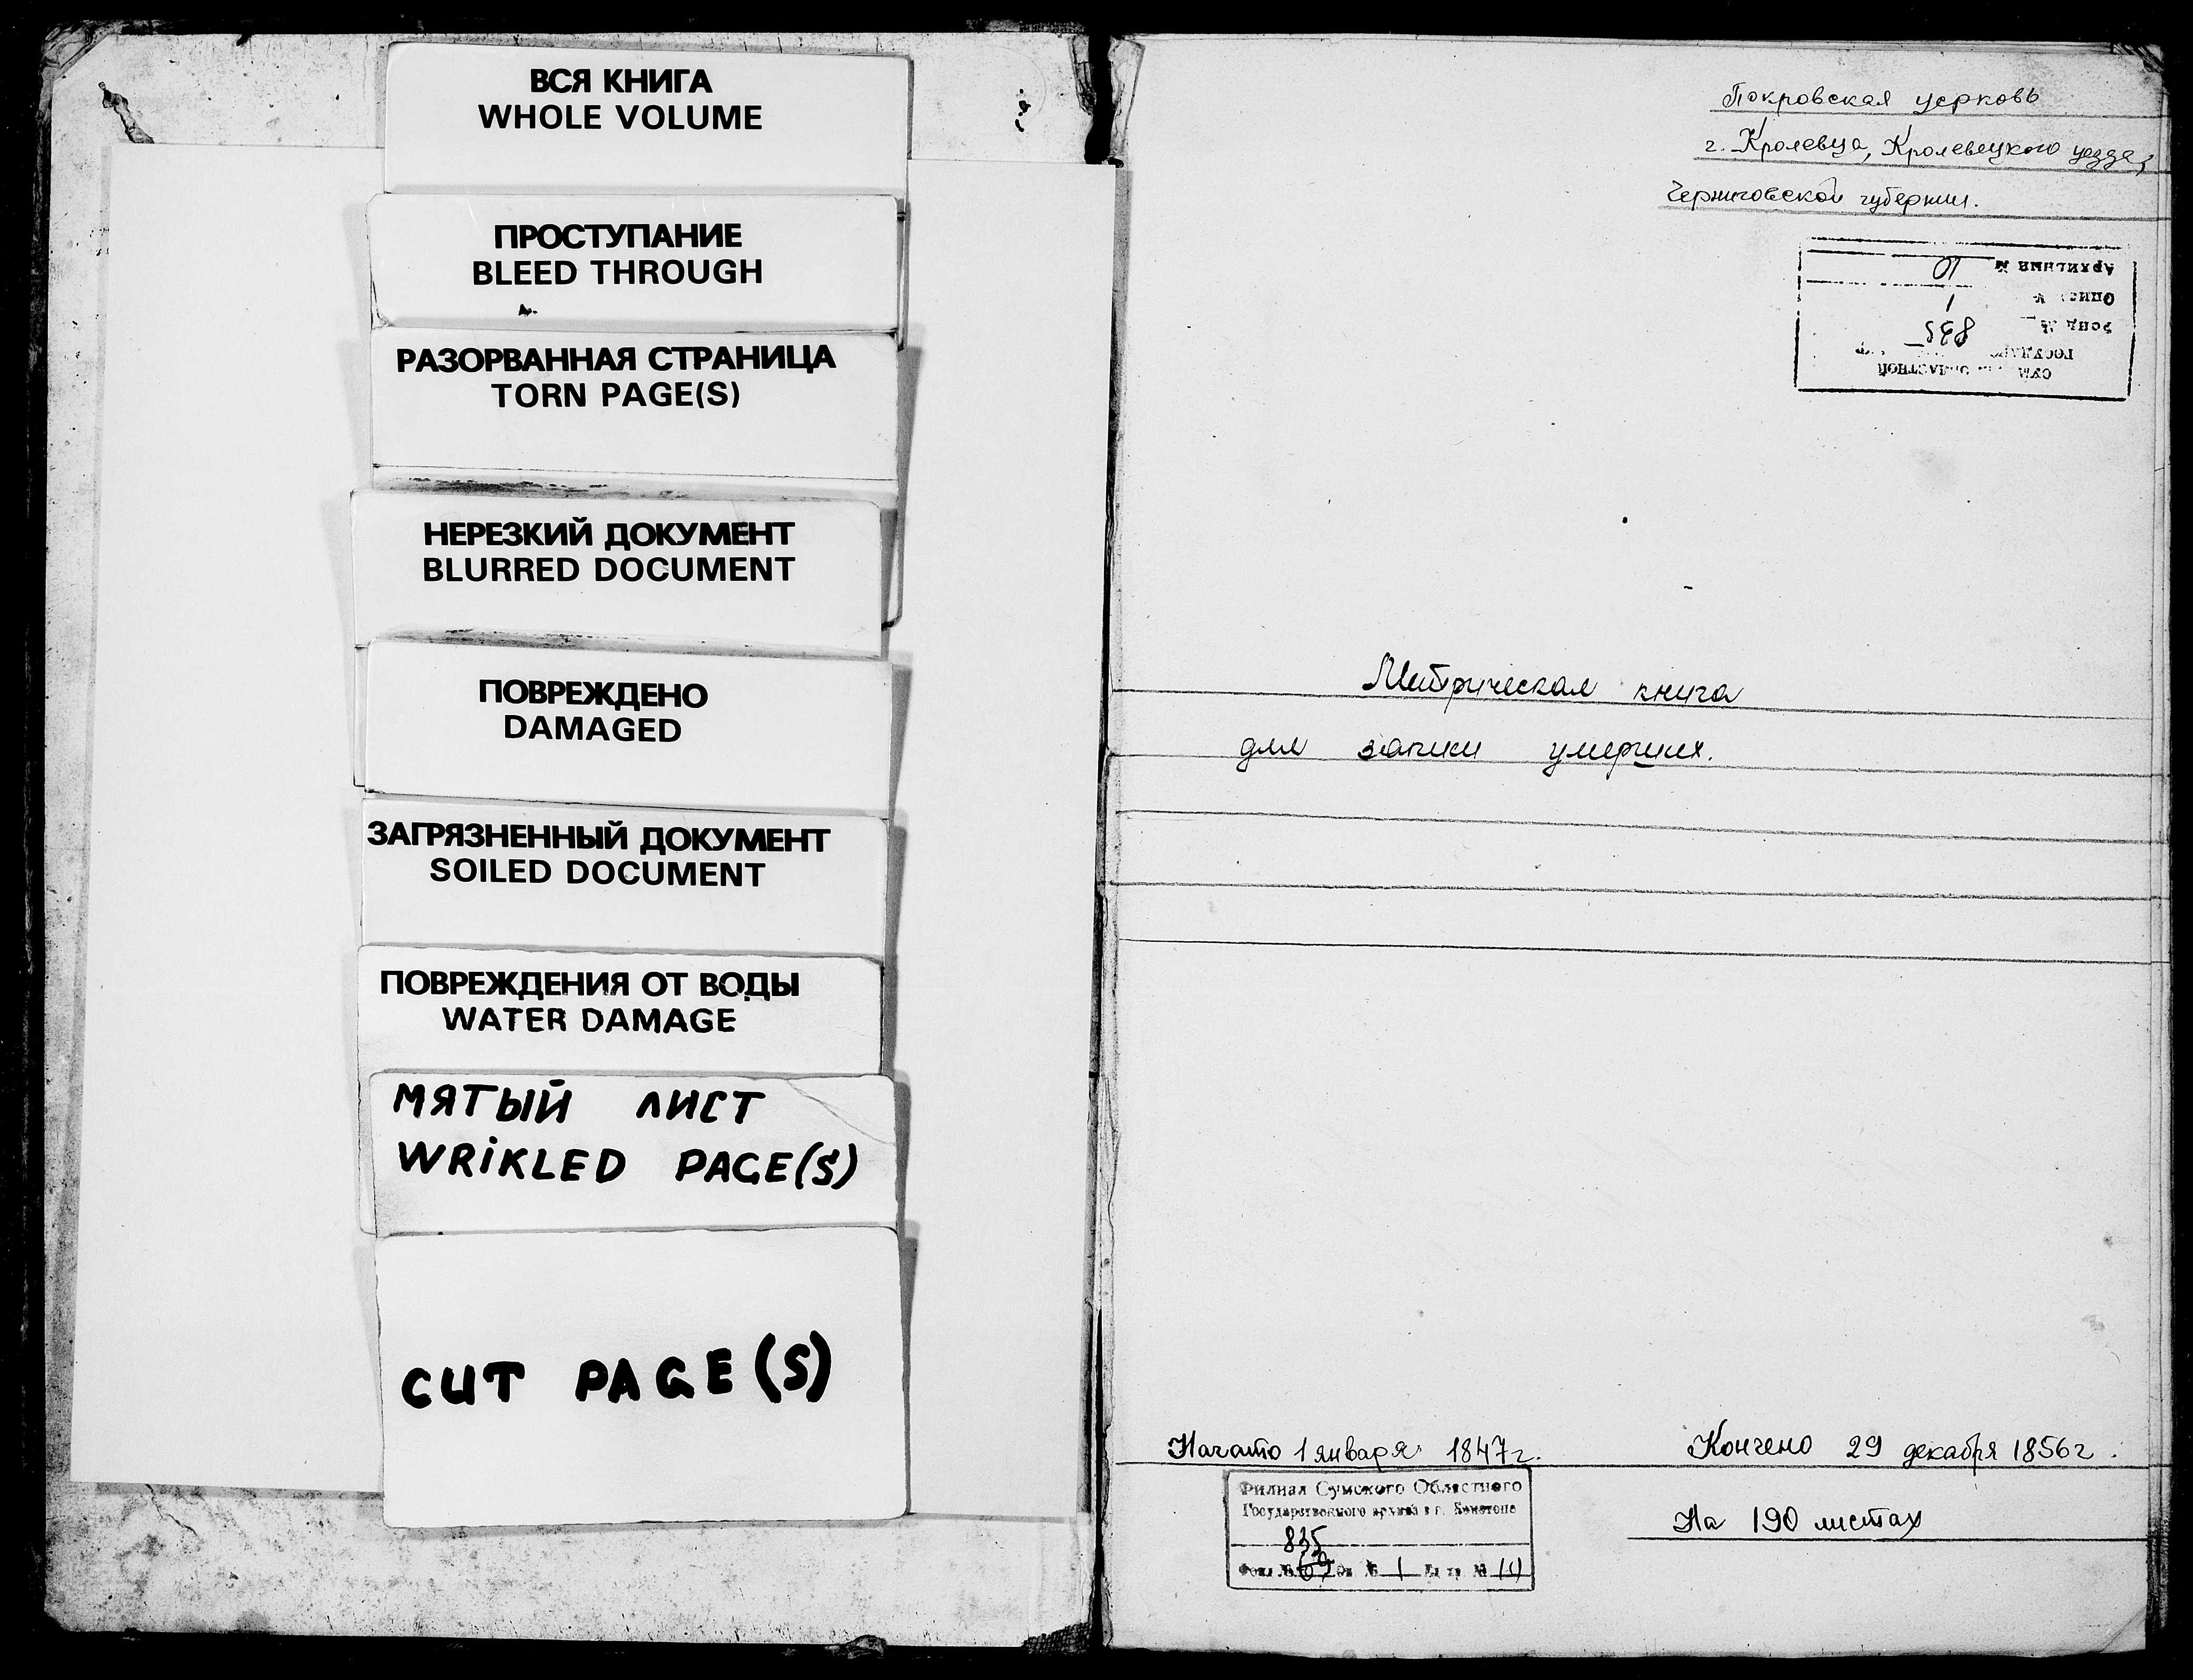 ВСЯ КНИГА
WHOLE VOLUME
ПРОСТУПАНИЕ
BLEED THROUGH
РАЗОРВАННАЯ СТРАНИЦА
TORN PAGE(S)
НЕРЕЗКИЙ ДОКУМЕНТ
BLURRED DOCUMENT
ПОВРЕЖДЕНО
DAMAGED
ЗАГРЯЗНЕННЫЙ ДОКУМЕНТ
SOILED DOCUMENT
ПОВРЕЖДЕНИЯ ОТ ВОДЫ
WATER DAMAGE
МЯТЫЙ ЛИСТ
WRiKLED PAGE(S)
CUT PAGE(S)
Покровская церковь
г. Кролевца, Кролевецкого уезда,
Черниговской губернии.
ОБЛАСТНОЙ
Фонд № 835
Опись № 1
Архивный № 10
Метрическая книга
для записи умерших.
Начато 1 января 1847 г.
Кончено 29 декабря 1856 г.
Филиал Сумского Областного
Государственного архива в г. Конотопе
835
Фонд № 69 Оп № 1 Ед. хр. № 10
На 190 листах